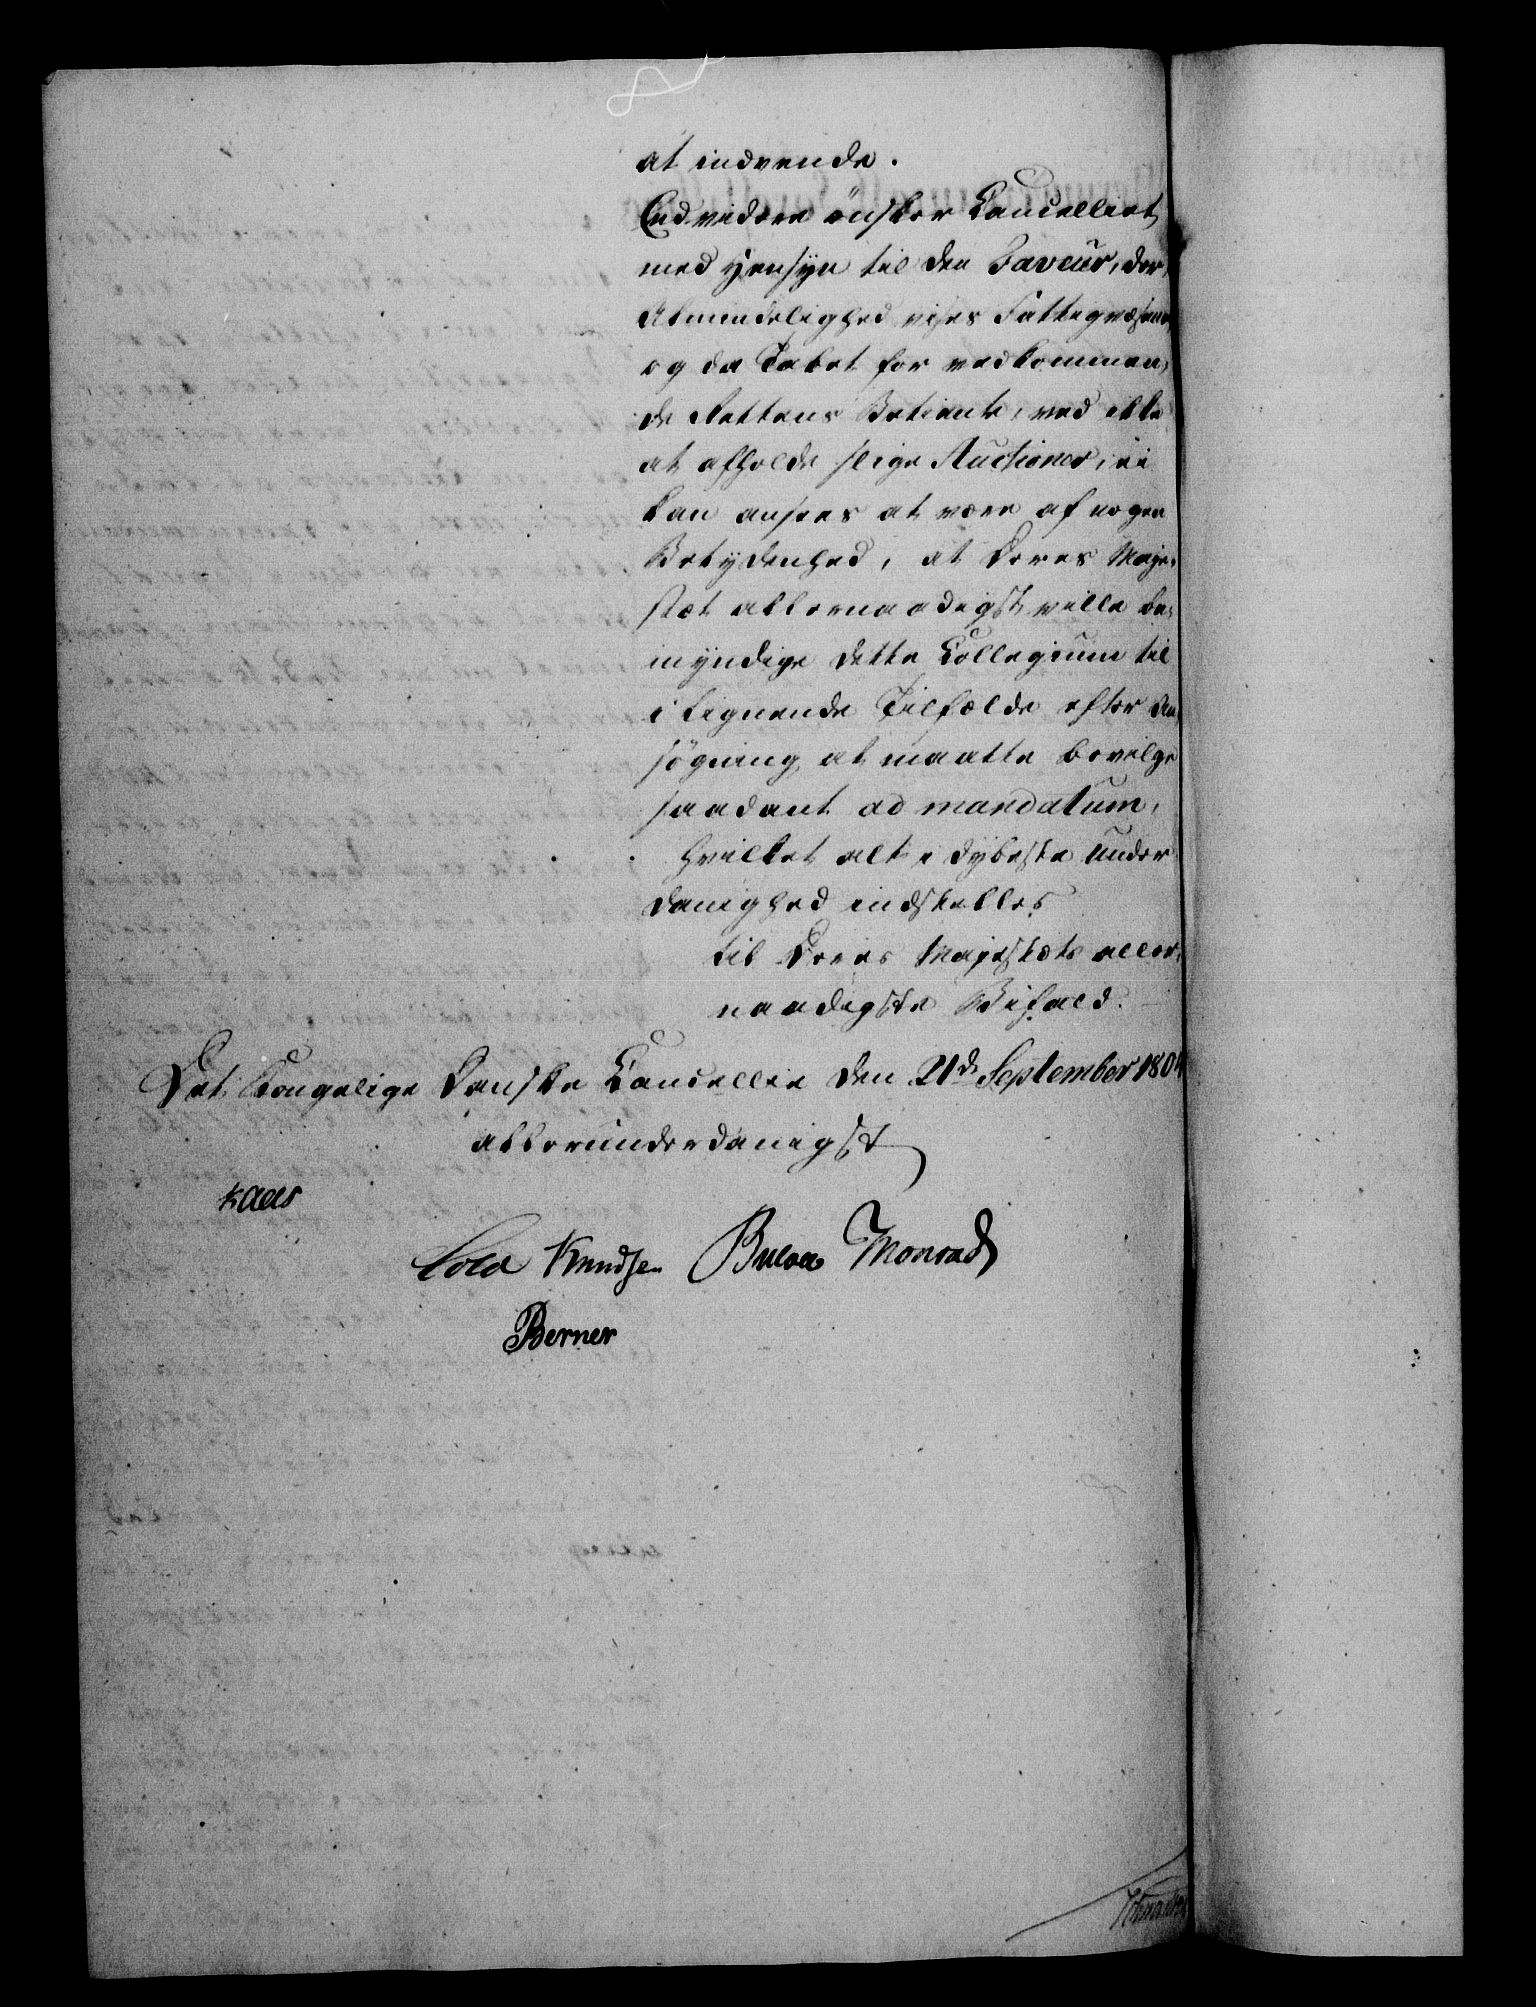 at indvende.
Endvidere önsker Cancelliet,
med Hensyn til den Faveur, der i
Almindelighed vises Fattigvæsenet
og da Tabet for vedkommen-
de Rettens Betiente, ved ikke
at afholde slige Auctioner, ei
kan ansees at være af nogen
Betydenhed, at Deres Maje-
stæt allernaadigst ville be-
myndige dette Collegium til
i lignende Tilfælde efter An-
sögning at maatte bevilge
saadant ad mandatum,
hvilket alt i dybeste Under-
danighed indstilles
til Deres Majestæts aller-
naadigste Bifald.
Det Kongelige Danske Cancellie den 21d September 1804
allerunderdanigst
Kaas
Cold Knudsen Bülow Monrad
Berner